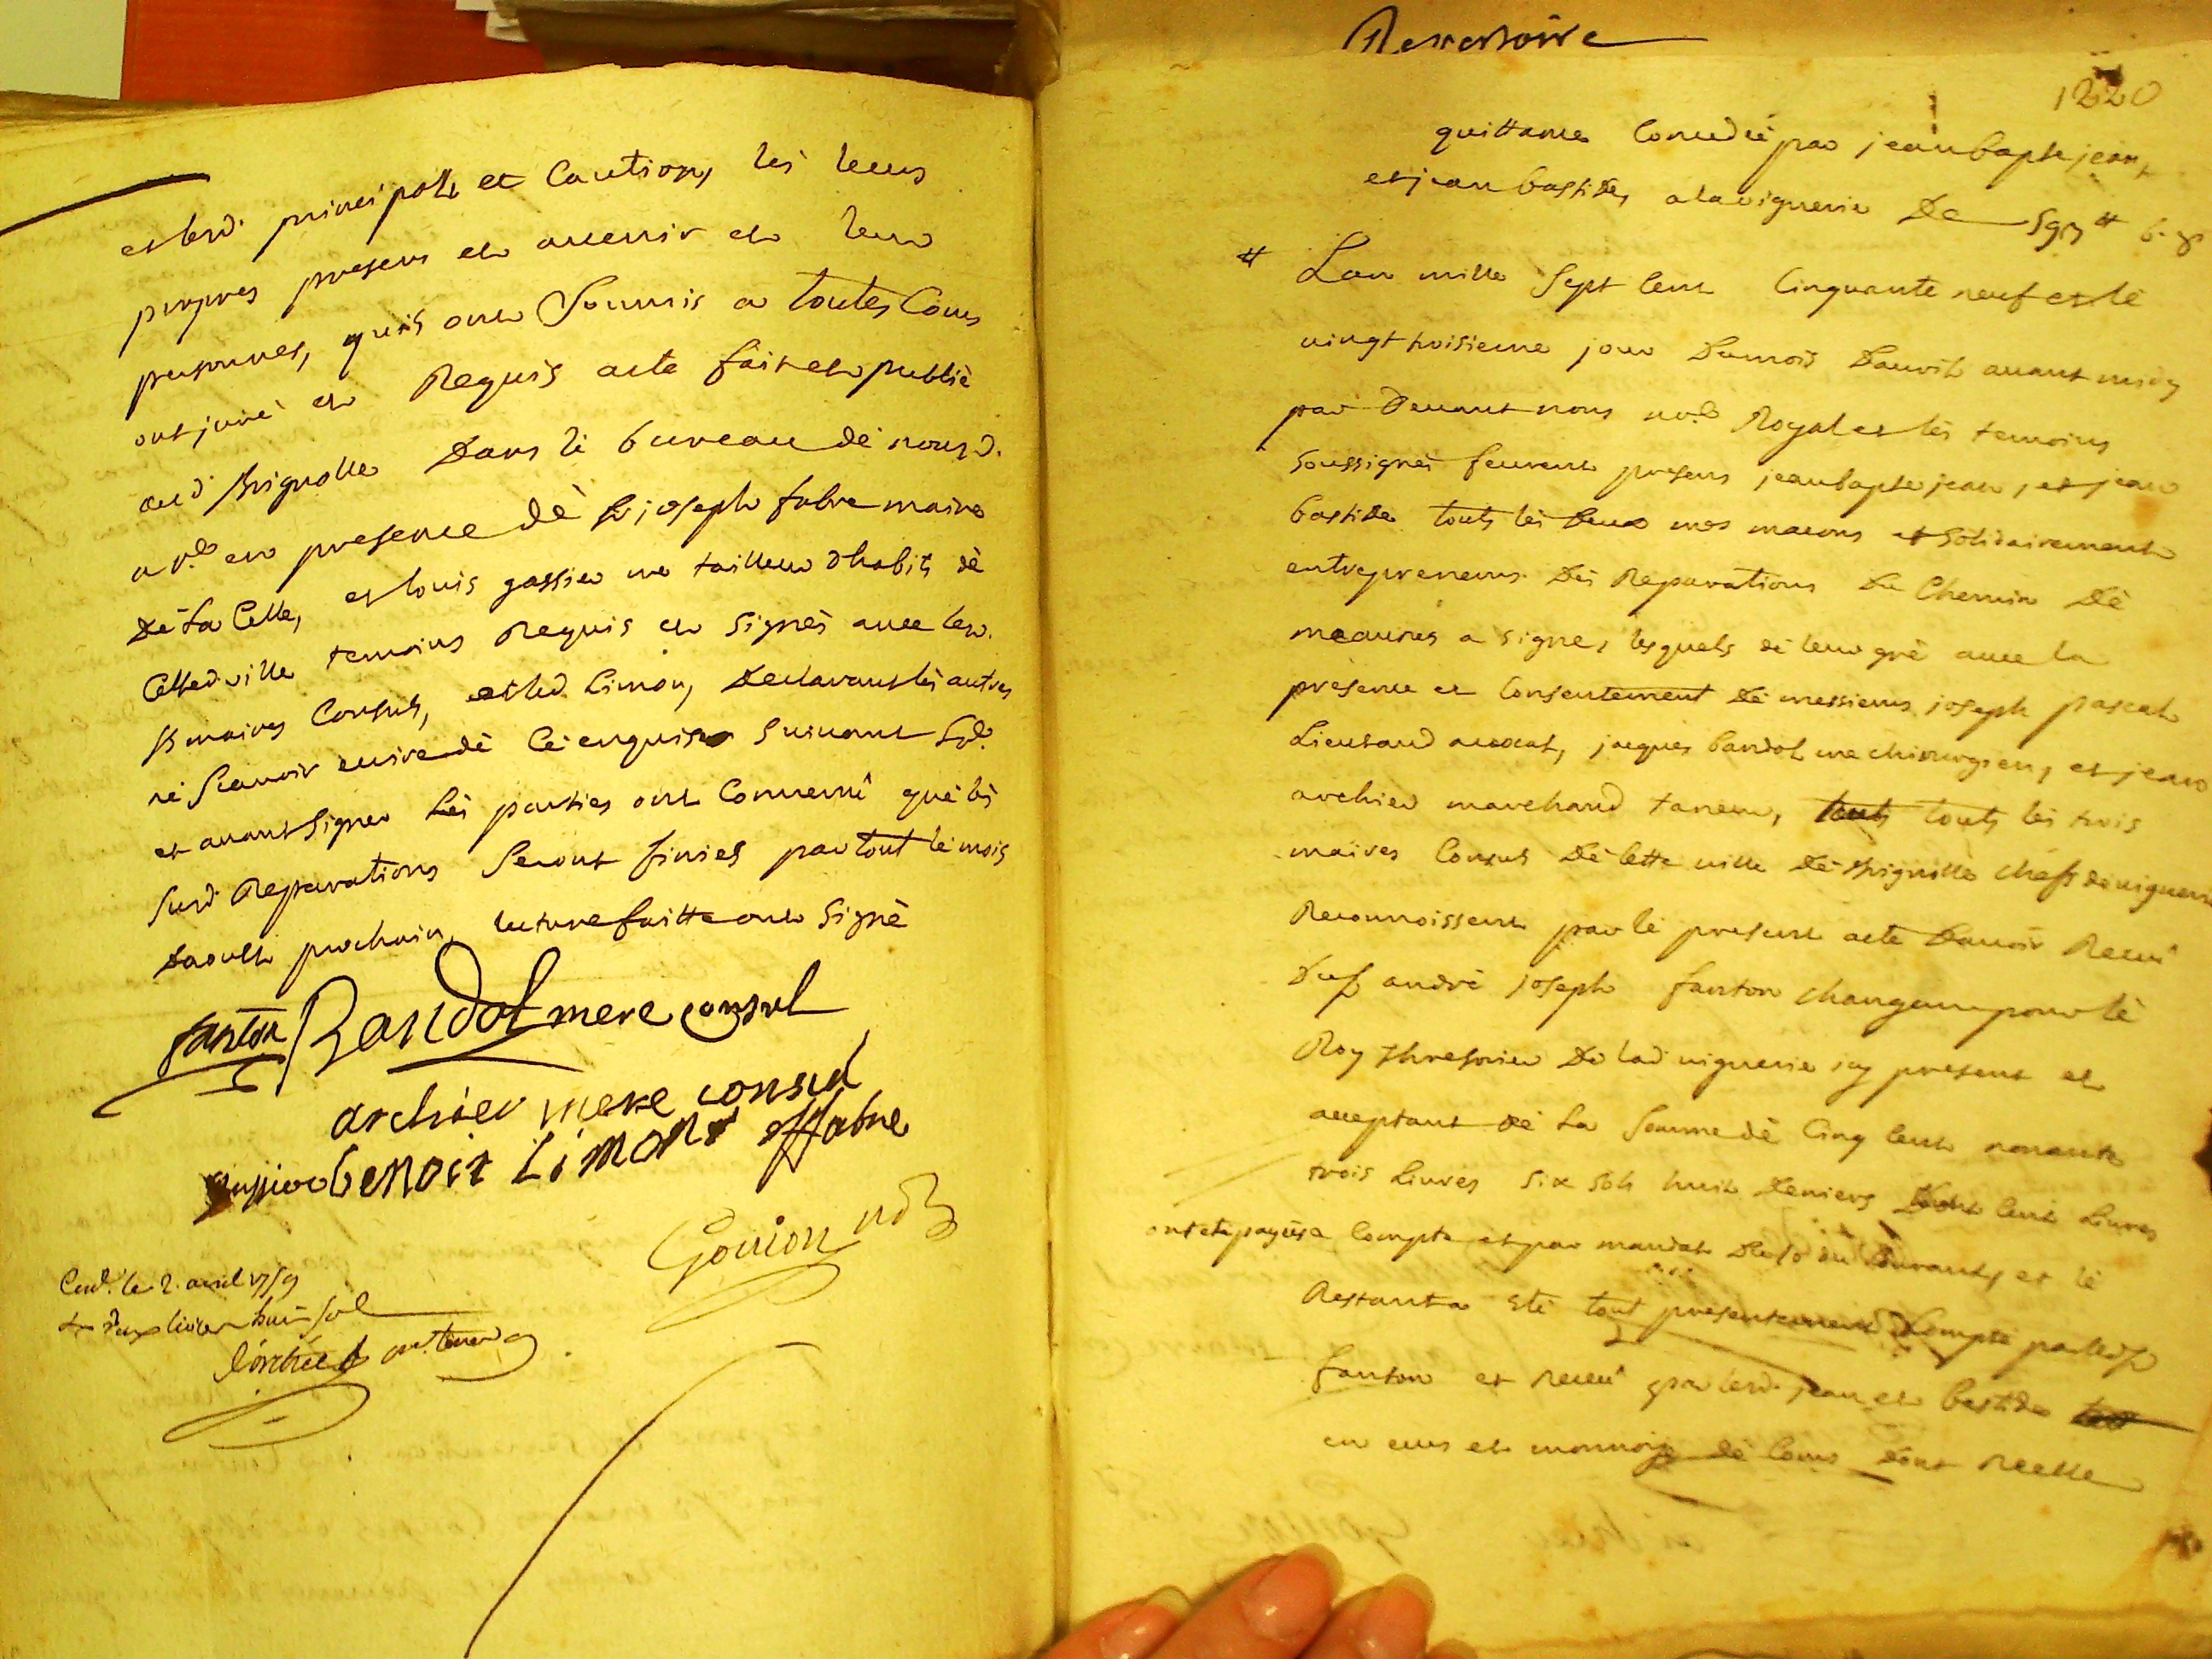 et lesd. principal et Caution, les leurs
propres presens et avenir et leurs
personnes, quis ont Soumis a toutes Cours
ont juré et Requis acte fait et publié
aud Brignolle Dans le bureau de nousd.
nre en presence de Sr joseph fabre maire
De La Celle, et louis gassier me tailleur d'habits de
Cetted ville temoins Requis et Signés avec lesd.
Srs maires Consuls, et led Limon, Declarant les autres
ne Scavoir ecrire de Ce enquis Suivant
et avant Signer Les parties ont Convenu que les
Susd Reparations Seront finies par tout le mois
Daoust prochain, lecture faitte ont Signé
fanton Bandol mere consul
archier mere consul
gassier benoit Limon fabre
Goujon
le 2. avril 1759
deux livres huit sol
Repertoire
1220
quittance Concedée par jean bapte jean,
et jean bastide, a la viguerie De 593 ₶ 6. 8
₶ L'an mille Sept Cent Cinquante neuf et le
vingt troisieme jour Du mois D'avril avant midy
par Devant nous nore Royal et les temoins
Soussignés feurent presens jean bapte jean, et jean
bastide touts les Deux mes macons et Solidairement
entrepreneurs Des Reparations Du Chemin De
meaunes a Signe, lesquels de leur gré avec la
presence et Consentement De messieurs joseph pascal
Lieutaud avocat, jaques bandol me chirurgien, et jean
archier marchand taneur, touts touts les trois
maires Consuls De Cette ville De Brignolle chefs de viguerie
Reconnoissent par le present acte D'avoir Receu
Du Sr andré joseph fanton changeur pour le
Roy thresorier De lad viguerie icy present et
acceptant de La Somme de Cinq Cent nonante
trois Livres Six Sols huit Deniers Dont Cent Livres
ont eté payés a Compte et par mandat et le
Restant a eté tout presentement Compté par led Sr
fanton et receu par lesd. jean et bastide
en ecus et monnoye de Cours Dont